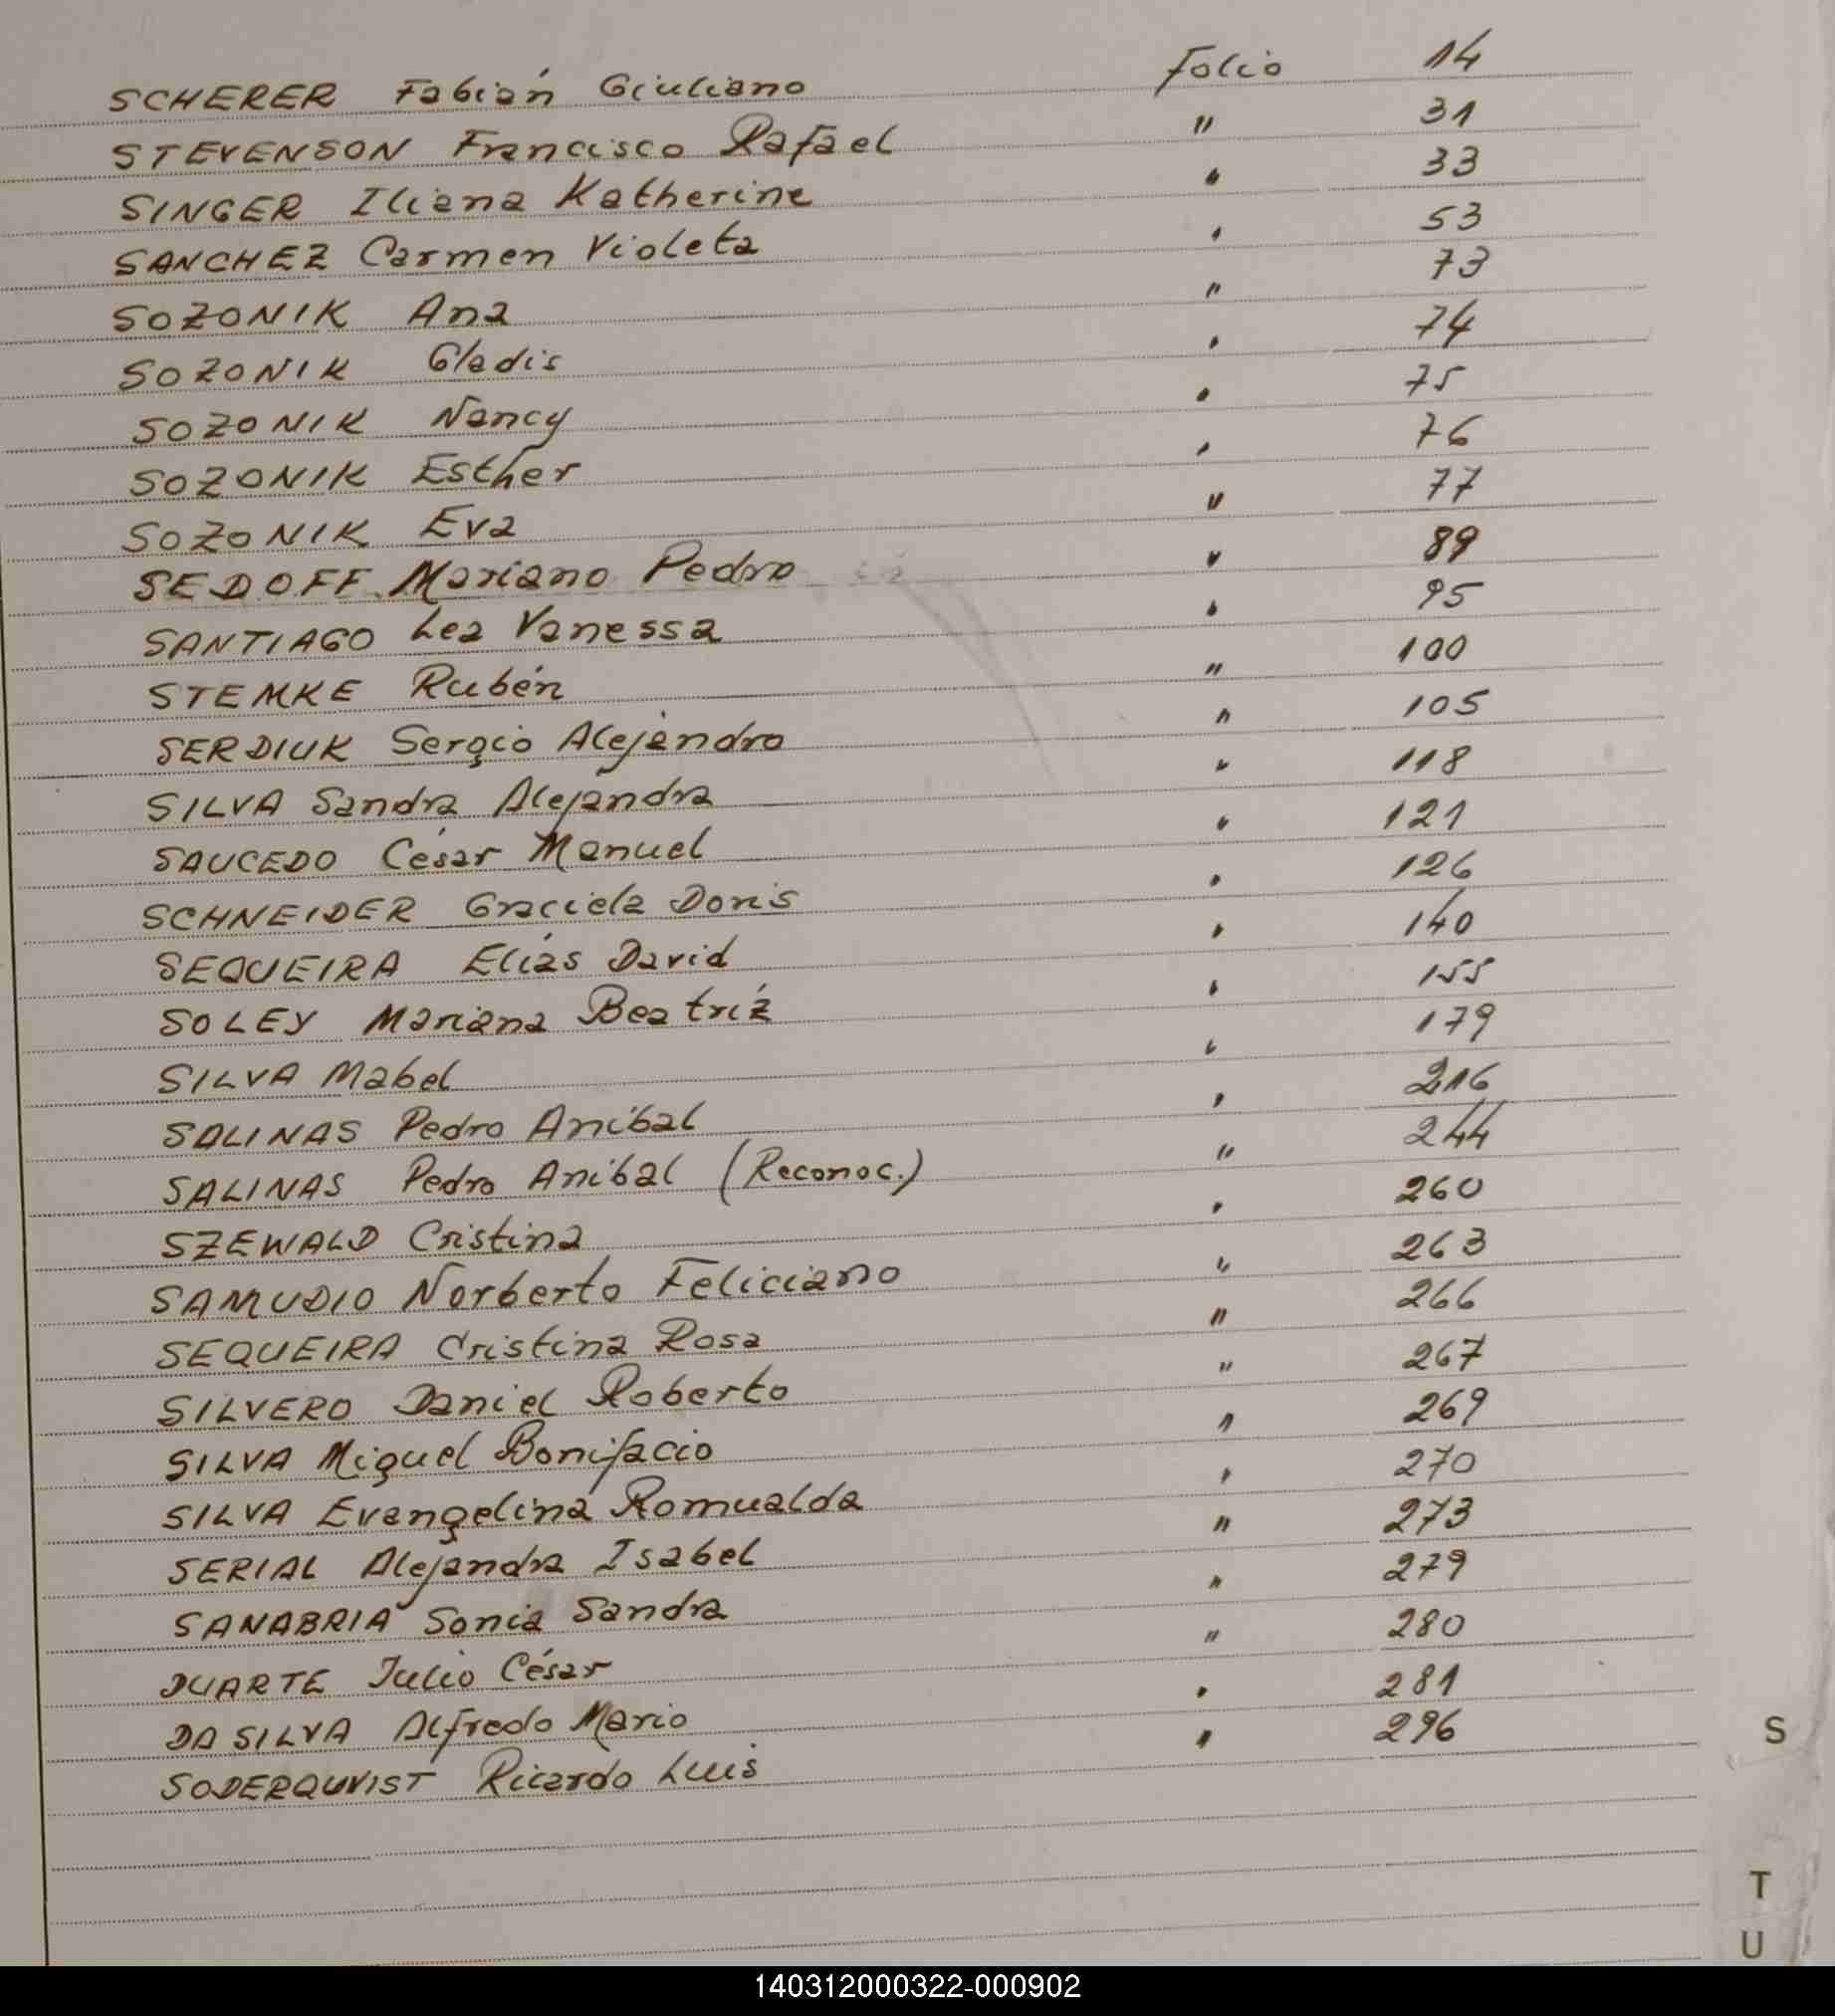 SCHERER Fabián Giuliano Folio 14
STEVENSON Francisco Rafael " 31
SINGER Iliana Katherine " 33
SANCHEZ Carmen Violeta " 53
SOZONIK Ana " 73
SOZONIK Gladis " 74
SOZONIK Nancy " 75
SOZONIK Esther " 76
SOZONIK Eva " 77
SEDOFF Mariano Pedro " 89
SANTIAGO Lea Vanessa " 95
STEMKE Rubén " 100
SERDIUK Sergio Alejandro " 105
SILVA Sandra Alejandra " 118
SAUCEDO César Manuel " 121
SCHNEIDER Graciela Doris " 126
SEQUEIRA Elías David " 140
SOLEY Mariana Beatríz " 155
SILVA Mabel " 179
SALINAS Pedro Anibal " 216
SALINAS Pedro Anibal (Reconoc.) " 244
SZEWALD Cristina " 260
SAMUDIO Norberto Feliciano " 263
SEQUEIRA Cristina Rosa " 266
SILVERO Daniel Roberto " 267
SILVA Miguel Bonifacio " 269
SILVA Evangelina Romualda " 270
SERIAL Alejandra Isabel " 273
SANABRIA Sonia Sandra " 279
DUARTE Julio César " 280
DA SILVA Alfredo Mario " 281
SODERQUVIST Ricardo Luis " 296
S
T
U
140312000322-000902